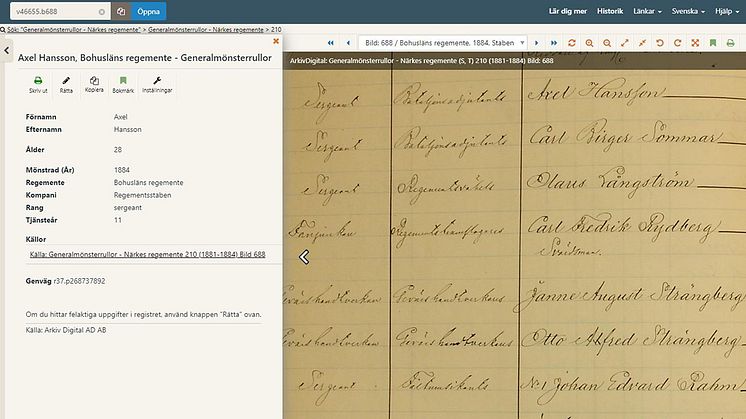 v46655.b688
Öppna
Lär dig mer
Historik
Länkar
Svenska
Hjälp
Sök: "Generalmönsterrullor - Närkes regemente" > Generalmönsterrullor - Närkes regemente > 210
Bild: 688 / Bohusläns regemente, 1884, Staben
ArkivDigital: Generalmönsterrullor - Närkes regemente (S, T) 210 (1881-1884) Bild: 688
Axel Hansson, Bohusläns regemente - Generalmönsterrullor
Skriv ut
Rätta
Kopiera
Bokmärk
Inställningar
Förnamn Axel
Efternamn Hansson
Ålder 28
Mönstrad (År) 1884
Regemente Bohusläns regemente
Kompani Regementsstaben
Rang sergeant
Tjänsteår 11
Källor
Källa: Generalmönsterrullor - Närkes regemente 210 (1881-1884) Bild 688
Genväg r37.p268737892
Om du hittar felaktiga uppgifter i registret, använd knappen "Rätta" ovan.
Källa: Arkiv Digital AD AB
Sergeant Bataljonsadjutants Axel Hansson
Sergeant Bataljonsadjutants Carl Birger Sommar
Sergeant Regementsväbels Olaus Långström
Fanjunkare Regementstrumslagares Carl Fredrik Rydberg
Svärdsman.
Gevärshandtverkare Gevärshandtverkares Janne August Strångberg
Gevärshandtverkare Gevärshandtverkares Otto Alfred Strångberg
Sergeant Fältmusikants No 1 Johan Edvard Rahm